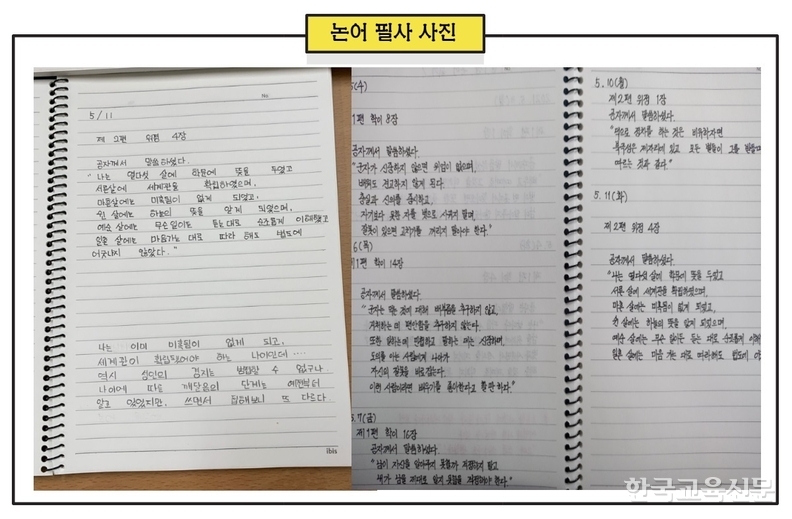 논어 필사 사진
No
5/11
제 2편 위정 4장
공자께서 말씀하셨다.
"나는 열다섯 살에 학문에 뜻을 두었고
서른살에 세계관을 확립하였으며,
마흔살에는 미혹됨이 없게 되었고,
쉰 살에는 하늘의 뜻을 알게 되었으며,
예순 살에는 무슨일이든 듣는대로 순조롭게 이해했고
일흔 살에는 마음가는 대로 따라 해도 법도에
어긋나지 않았다."
나는 이미 미혹됨이 없게 되고,
세계관이 확립됐어야 하는 나이인데....
역시 성인의 경지는 범접할 수 없구나.
나이에 따른 깨달음의 단계는 예전부터
알고 있었지만, 쓰면서 접해보니 또 다르다
ibis
5(수)
1편 학이 8장
공자께서 말씀하셨다.
"군자가 신중하지 않으면 위엄이 없으며,
배워도 견고하지 않게 된다.
충실과 신의를 중시하고,
자기보다 못한 자를 벗으로 사귀지 말며,
잘못이 있으면 고치기를 꺼리지 말아야 한다."
6(목)
제1편 학이 14장
공자께서 말씀하셨다.
"군자는 먹는 것에 대해 배부름을 추구하지 않고,
거처하는 데 편안함을 추구하지 않는다.
또한 일하는데 민첩하고 말하는 데는 신중하며,
도의를 아는 사람에게 나아가
자신의 잘못을 바로잡는다.
이런 사람이라면 배우기를 좋아한다고 할 만 하다."
5.7(금)
제1편 학이 16장
공자께서 말씀하셨다.
"남이 자신을 알아주지 못할까 걱정하지 말고
내가 남을 제대로 알지 못함을 걱정해야 한다."
5.10(월)
제2편 위정 1장
공자께서 말씀하셨다.
"덕으로 정치를 하는 것은 비유하자면
북극성은 제자리에 있고 모든 별들이 그를 받들며
따르는 것과 같다."
5.11(화)
제2편 위정 4장
공자께서 말씀하셨다.
"나는 열다섯 살에 학문에 뜻을 두었고
서른 살에 세계관을 확립하였으며,
마흔 살에는 미혹됨이 없게 되었고,
쉰 살에는 하늘의 뜻을 알게 되었으며,
예순 살에는 무슨 일이든 듣는 대로 순조롭게 이해
일흔 살에는 마음 가는 대로 따라해도 법도에 어
한국교육신문